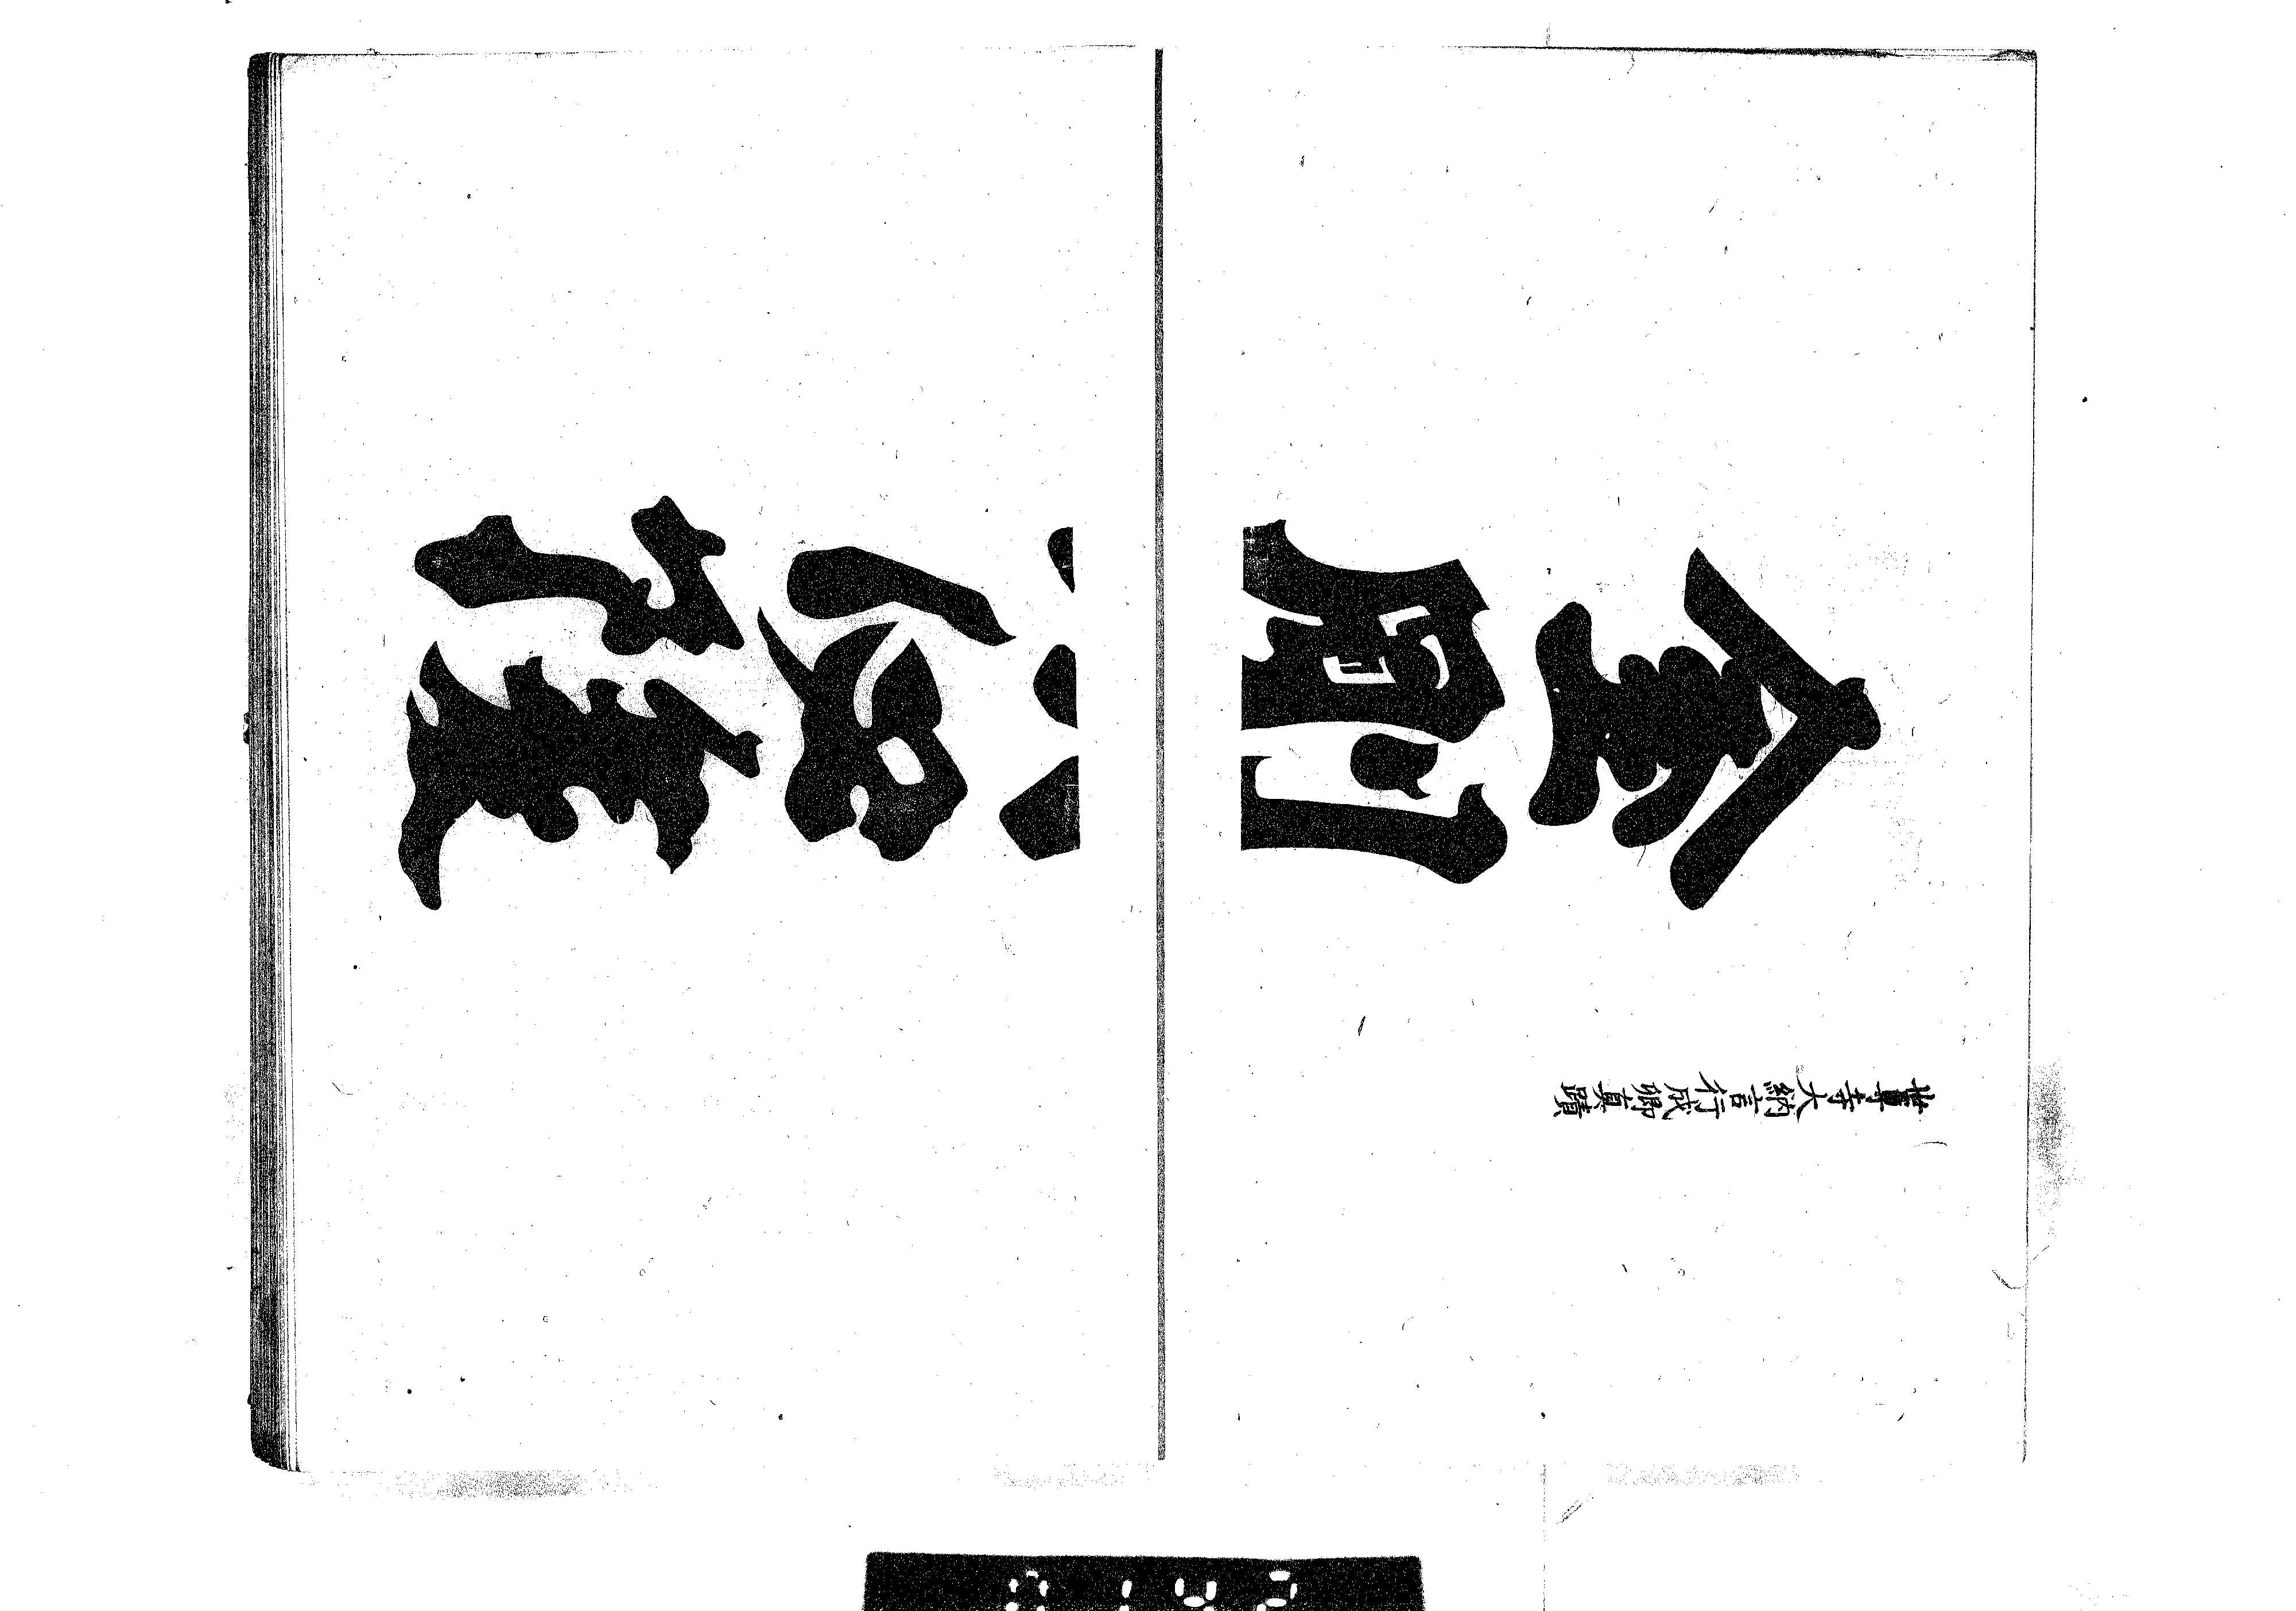 金剛
世尊寺大納言行成卿真蹟
0142